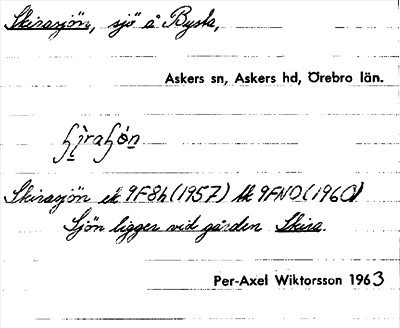 Skirasjön, sjö å Bysta,
Askers sn, Askers hd, Örebro län.
ʃìraʃón
Skirasjön ek 9F8h (1957) tk 9FNO (1960)
Sjön ligger vid gården Skira.
Per-Axel Wiktorsson 1963